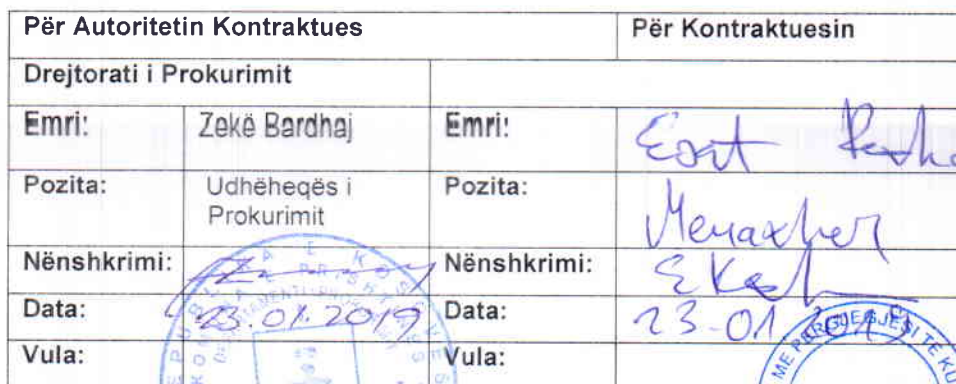 Për Autoritetin Kontraktues Për Kontraktuesin
Drejtorati i Prokurimit
Emri: Zekë Bardhaj Emri: Esat
Pozita: Udhëheqës i Prokurimit Pozita: Menaxher
Nënshkrimi: Nënshkrimi:
Data: 23.01.2019 Data: 23-01 2019
Vula: Vula:
ME PËRGJEGJËSI TË KU